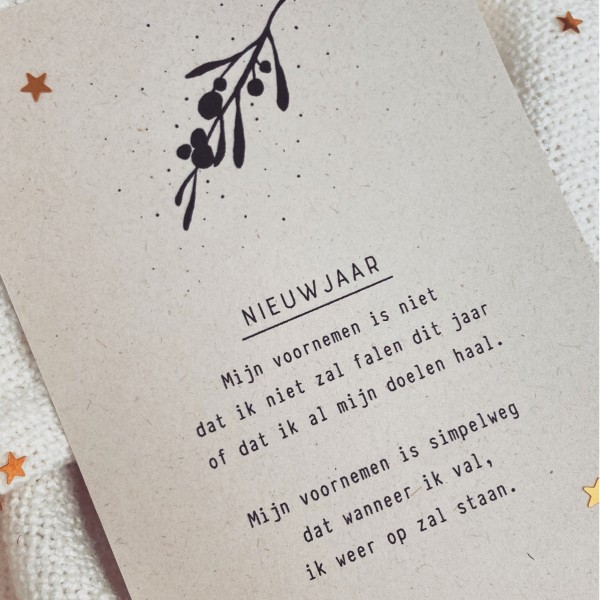 NIEUWJAAR
Mijn voornemen is niet
dat ik niet zal falen dit jaar
of dat ik al mijn doelen haal.
Mijn voornemen is simpelweg
dat wanneer ik val,
ik weer op zal staan.